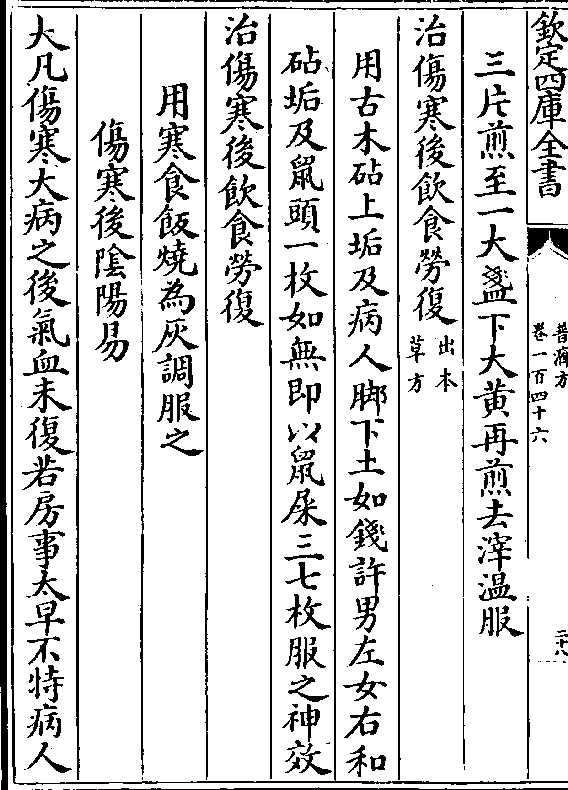 欽定四庫全書
普濟方
卷一百四十六
二十八
三片煎至一大盞下大黄再煎去滓温服
治傷寒後飲食勞復出本草方
用古木砧上垢及病人脚下土如錢許男左女右和
砧垢及鼠頭一枚如無即以鼠屎三七枚服之神效
治傷寒後飲食勞復
用寒食飯燒為灰調服之
傷寒後陰陽易
大凡傷寒大病之後氣血未復若房事太早不特病人